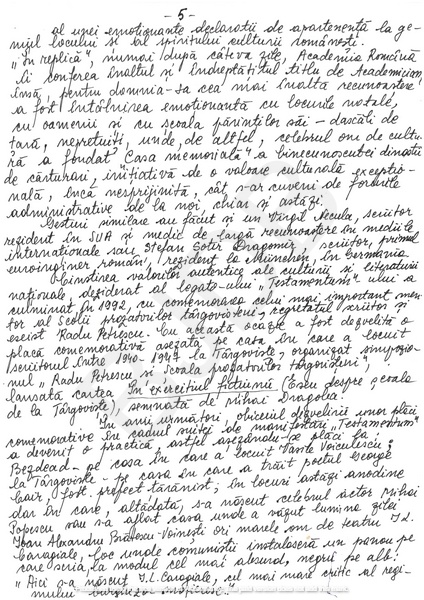 - 5 -
al unei emoționante declarații de apartenență la ge-
niul locului și al spiritului culturii românești.
„În replică", numai după câteva zile, Academia Română
îi conferea înaltul și îndreptățitul titlu de Academician,
însă, pentru domnia-sa cea mai înaltă recunoaștere
a fost întâlnirea emoționantă cu locurile natale,
cu oamenii și cu școala părinților săi - dascăli de
țară, neprețuiți, unde, de altfel, celebrul om de cultu-
ră a fondat „Casa memorială" a binecunoscutei dinastii
de cărturari, inițiativă de o valoare culturală excepțio-
nală, încă nesprijinită, cât s-ar cuveni de forurile
administrative de la noi, chiar și astăzi.
Gesturi similare au făcut și un Virgil Necula, scriitor
rezident în SUA și medic de largă recunoaștere în mediile
internaționale sau Ștefan Sotir Dragomir, scriitor, primul
euroinginer român, rezident la München, în Germania
Cinstirea valorilor autentice ale culturii și literaturii
naționale, deziderat al logato-ului „Testamentum" ului a
culminat în 1992, cu comemorarea celui mai important men-
tor al Școlii prozatorilor târgovișteni, regretatul scriitor și
eseist Radu Petrescu. Cu această ocazie a fost dezvelită o
placă comemorativă așezată pe casa în care a locuit
scriitorul între 1940-1947 la Târgoviște, organizat simpozio-
nul „Radu Petrescu și Școala prozatorilor târgovișteni",
lansată cartea În exercițiul ficțiunii (Eseu despre școala
de la Târgoviște), semnată de Mihai Dragolea.
În anii următori, obiceiul dezvelirii unor plăci
comemorative în cadrul suitei de manifestări „Testamentum"
a devenit o practică, astfel așezându-se plăci la
Bezdead - pe casa în care a locuit Vasile Voiculescu;
la Târgoviște - pe casa în care a trăit poetul George
fost prefect țărănist; în locuri astăzi anodine
dar în care, altădată, s-a născut celebrul actor Mihai
Popescu sau s-a aflat casa unde a văzut lumina zilei
Ioan Alexandru Brătescu-Voinești ori marele om de teatru I.L.
Caragiale, loc unde comuniștii instalaseră un panou pe
care scria, la modul cel mai absurd, negru pe alb:
„Aici s-a născut I.L. Caragiale, cel mai mare critic al regi-
mului burghezo-moșieresc".